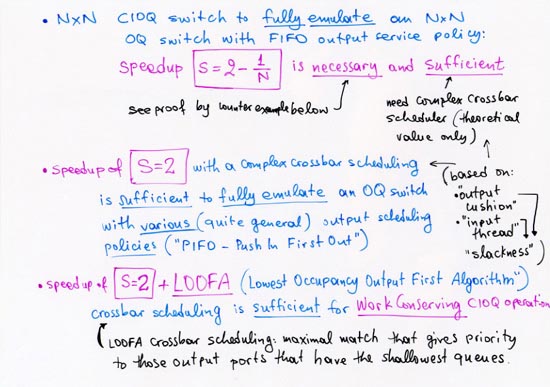 • N×N CIOQ switch to fully emulate an N×N
OQ switch with FIFO output service policy:
speedup S=2-1/N is necessary and sufficient
see proof by counter example below
need complex crossbar
scheduler (theoretical
value only)
• speedup of S=2 with a complex crossbar scheduling
is sufficient to fully emulate an OQ switch
with various (quite general) output scheduling
policies ("PIFO - Push In First Out")
(based on:
• "output
cushion"
• "input
thread"
"slackness")
• speedup of S=2 + LOOFA (Lowest Occupancy Output First Algorithm")
crossbar scheduling is sufficient for Work Conserving CIOQ operation
LOOFA crossbar scheduling: maximal match that gives priority
to those output ports that have the shallowest queues.